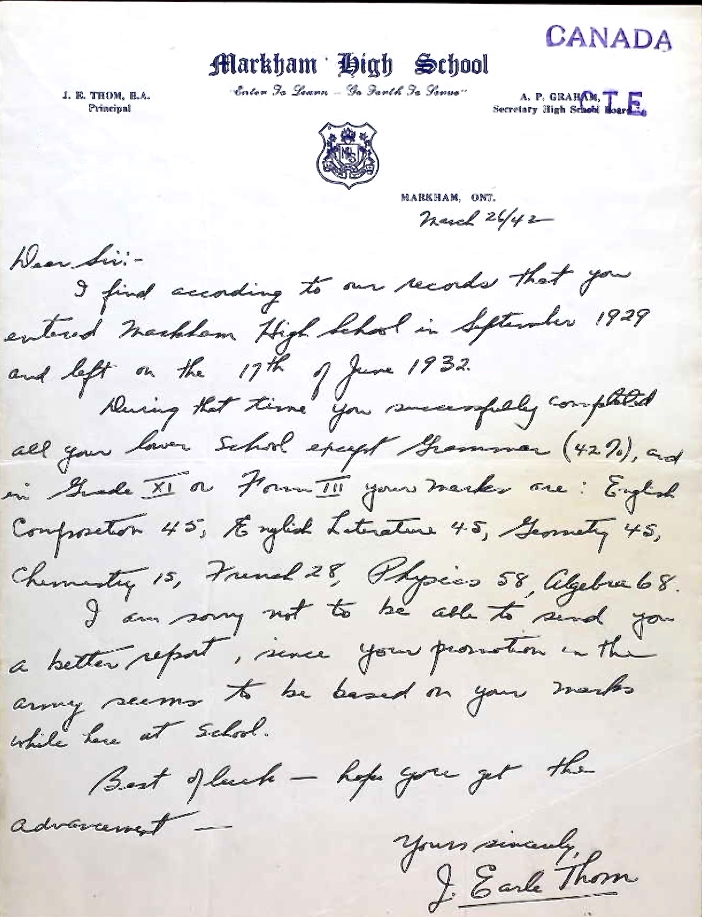 CANADA
Markham High School
"Enter To Learn — Go Forth To Serve"
J. E. THOM, B.A.
Principal
A. P. GRAHAM,
Secretary High School Board
C.T.E.
MARKHAM, ONT.
March 26/42
Dear Sir:-
I find according to our records that you
entered Markham High School in September 1929
and left on the 17th of June 1932.
During that time you successfully completed
all your lower School except Grammar (42%), and
in Grade XI or Form III your marks are: English
Composition 45, English Literature 45, Geometry 45,
Chemistry 15, French 28, Physics 58, Algebra 68.
I am sorry not to be able to send you
a better report, since your promotion in the
army seems to be based on your marks
while here at School.
Best of luck — hope you get the
advancement —
Yours sincerely,
J. Earle Thom